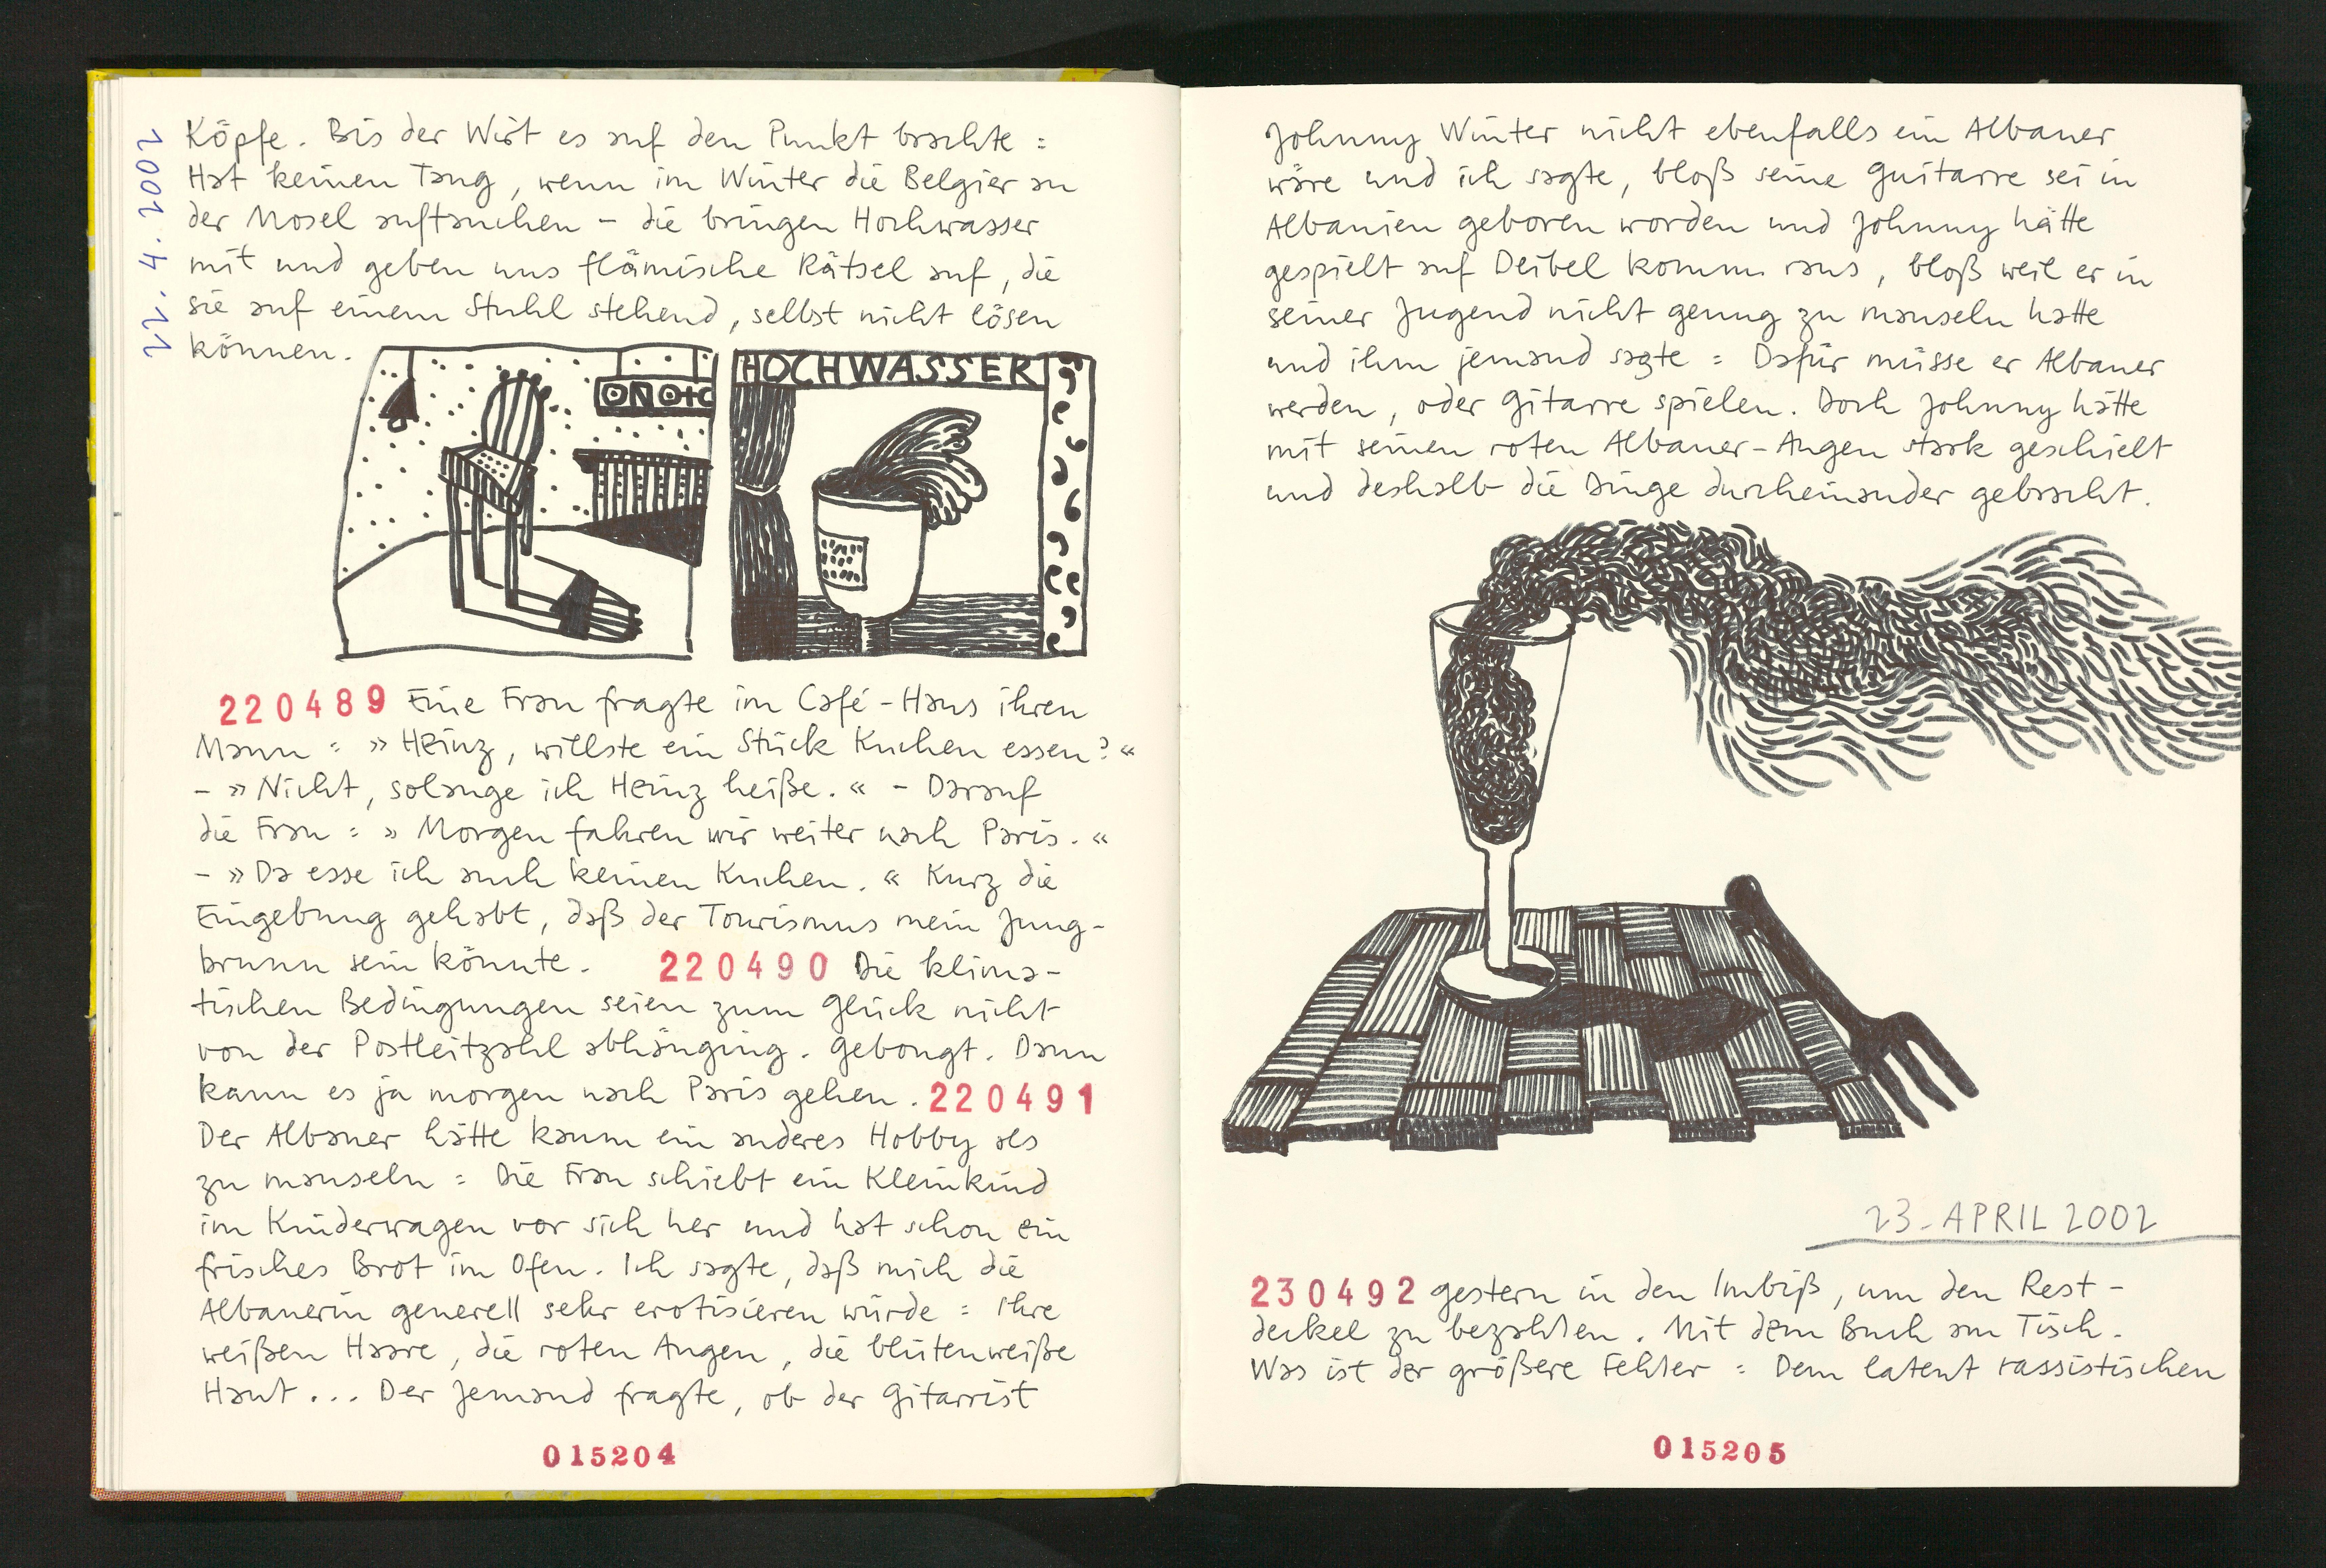 22.4.2002
Köpfe. Bis der Wirt es auf den Punkt brachte :
Hat keinen Tang, wenn im Winter die Belgier an
der Mosel auftauchen – die bringen Hochwasser
mit und geben uns flämische Rätsel auf, die
sie auf einem Stuhl stehend, selbst nicht lösen
können.
HOCHWASSER
220489 Eine Frau fragte im Café-Haus ihren
Mann : » Heinz, willste ein Stück Kuchen essen? «
– » Nicht, solange ich Heinz heiße. « – Darauf
die Frau : » Morgen fahren wir weiter nach Paris. «
– » Da esse ich auch keinen Kuchen. « Kurz die
Eingebung gehabt, daß der Tourismus mein Jung-
brunn sein könnte. 220490 Die klima-
tischen Bedingungen seien zum Glück nicht
von der Postleitzahl abhänging. Gebongt. Dann
kann es ja morgen nach Paris gehen. 220491
Der Albaner hätte kaum ein anderes Hobby als
zu mauseln : Die Frau schiebt ein Kleinkind
im Kinderwagen vor sich her und hat schon ein
frisches Brot im Ofen. Ich sagte, daß mich die
Albanerin generell sehr erotisieren würde : Ihre
weißen Haare, die roten Augen, die blütenweiße
Haut ... Der Jemand fragte, ob der Gitarrist
015204
Johnny Winter nicht ebenfalls ein Albaner
wäre und ich sagte, bloß seine Guitarre sei in
Albanien geboren worden und Johnny hätte
gespielt auf Deibel komm raus, bloß weil er in
seiner Jugend nicht genug zu mauseln hatte
und ihm jemand sagte : Dafür müsse er Albaner
werden, oder Gitarre spielen. Doch Johnny hätte
mit seinen roten Albaner-Augen stark geschielt
und deshalb die Dinge durcheinander gebracht.
23. APRIL 2002
230492 Gestern in den Imbiß, um den Rest-
deckel zu bezahlen. Mit dem Buch am Tisch.
Was ist der größere Fehler : Dem latent rassistischen
015205